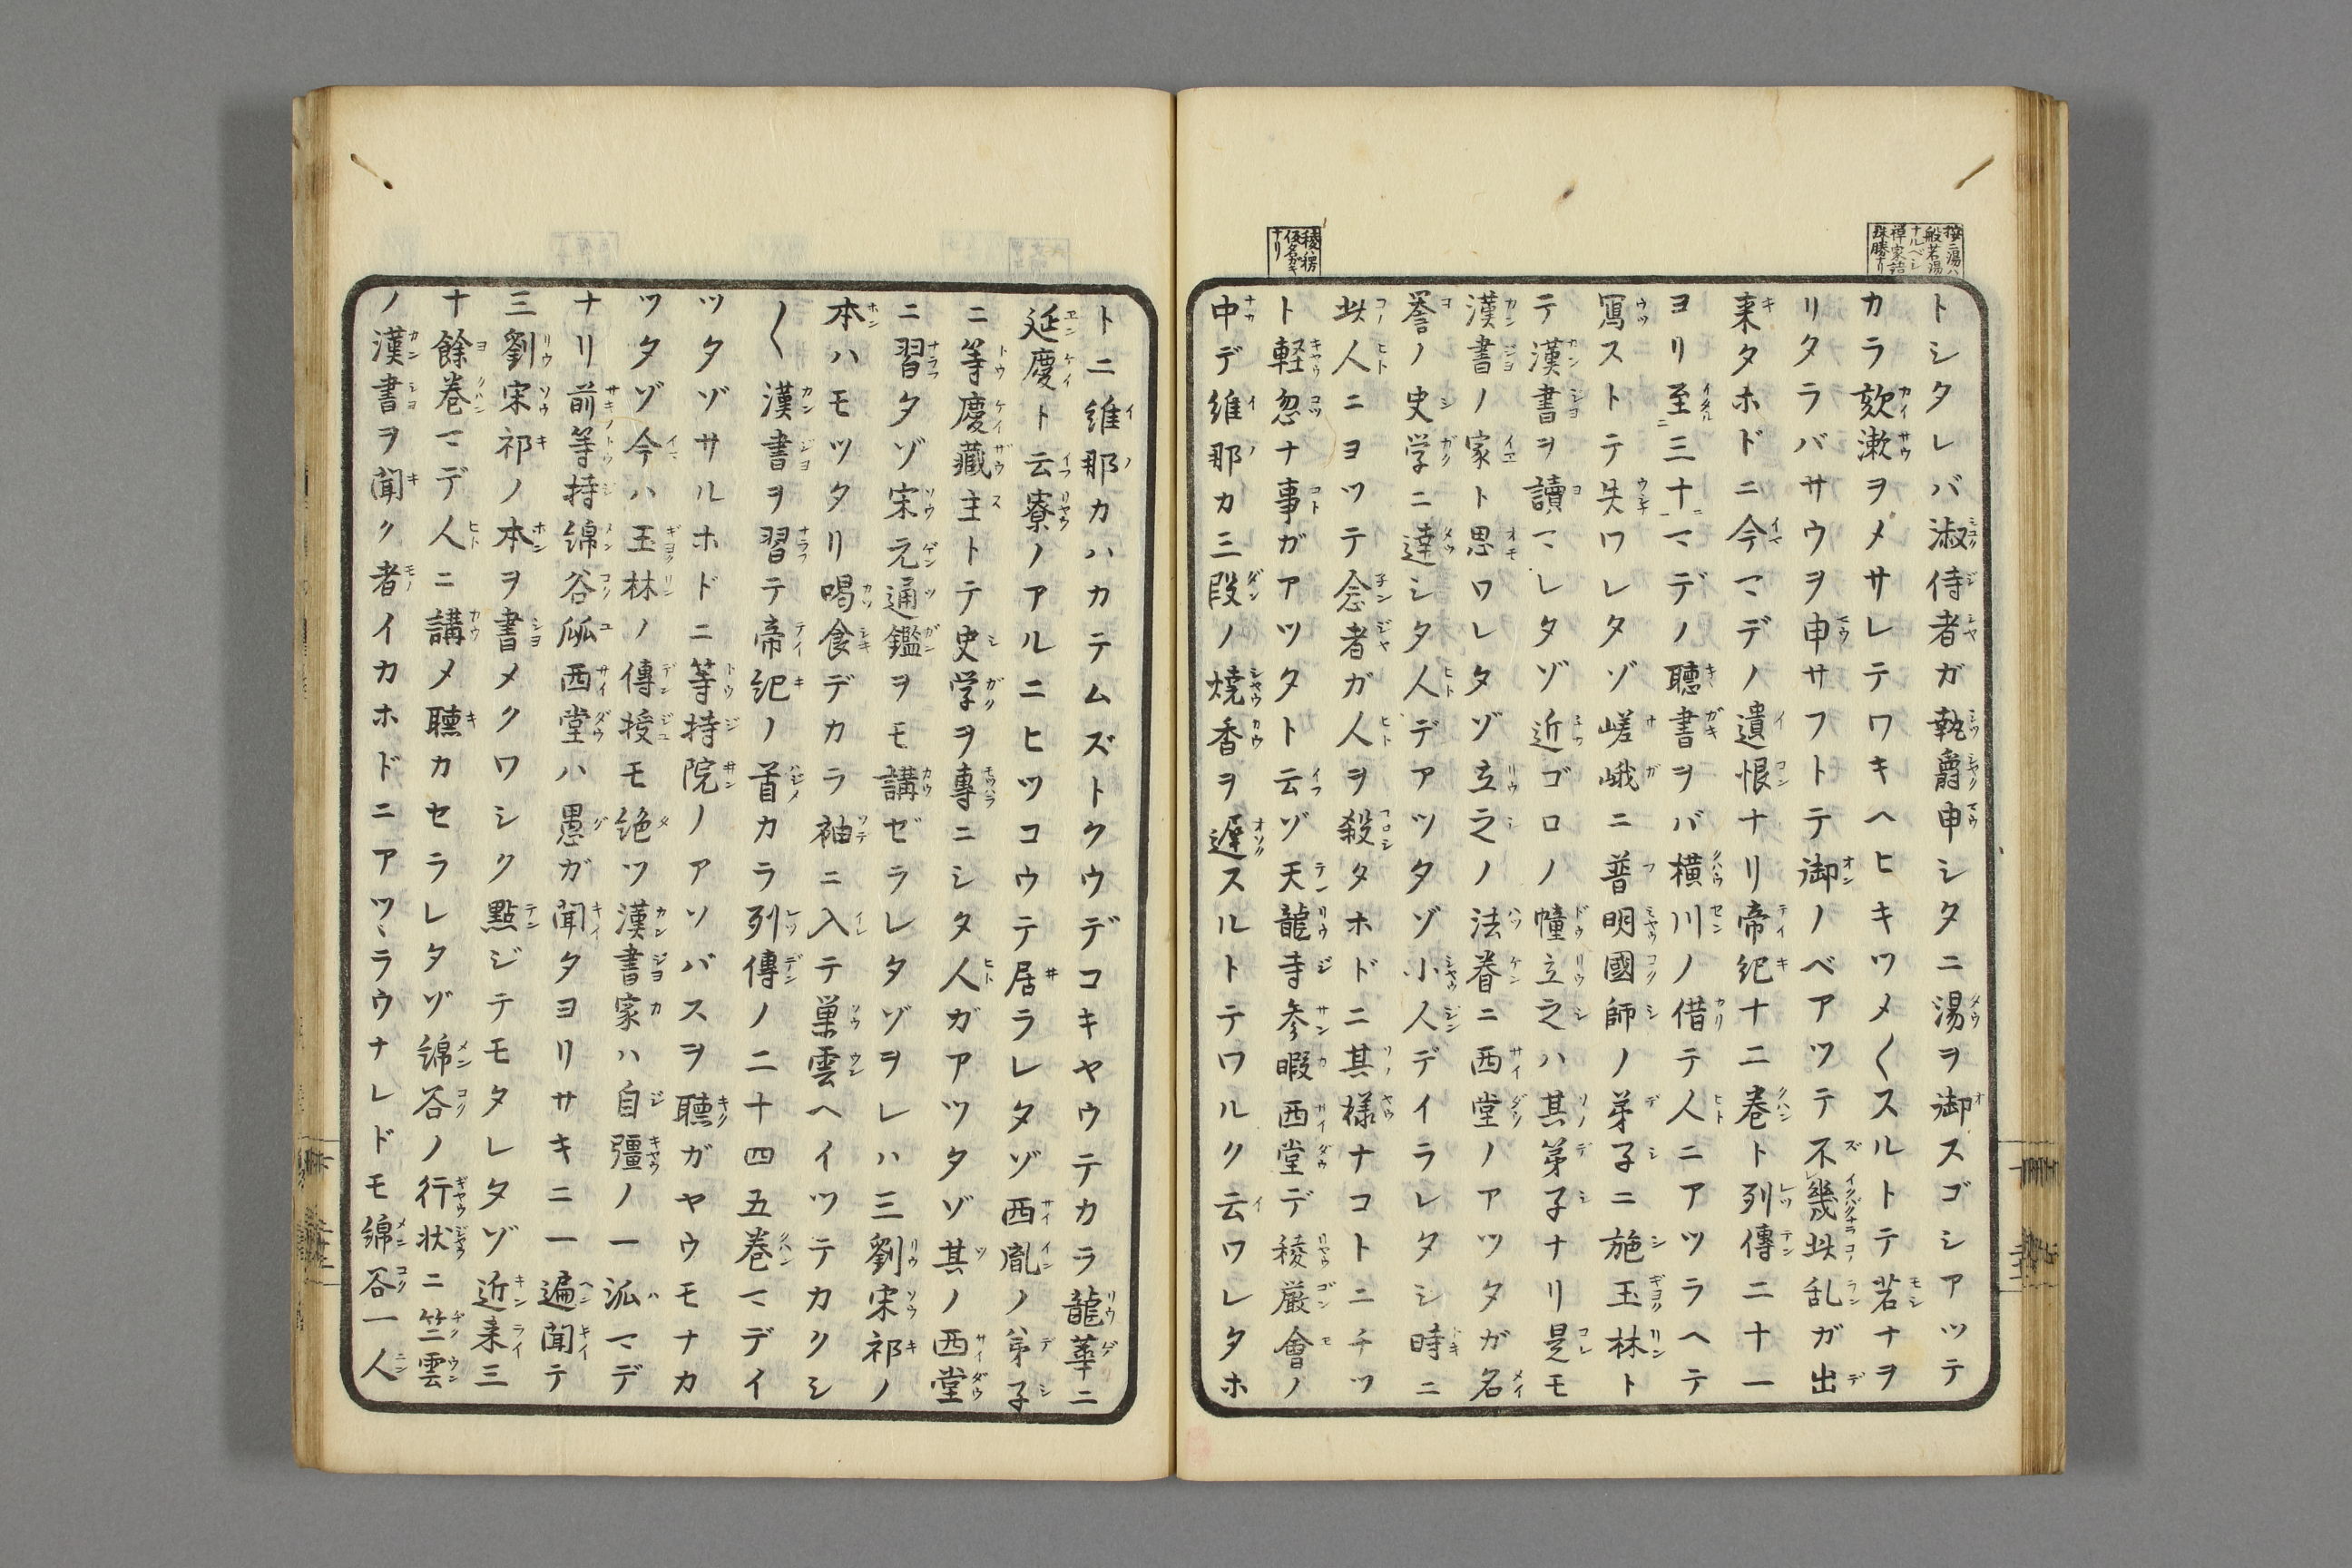 按ニ湯ハ
般若湯
ナルベシ
禅家語
殊勝ナリ
トシタレバ淑侍者ガ執爵申シタニ湯ヲ御スゴシアツテ
カラ欬漱ヲメサレテワキヘヒキツメ〱スルトテ若ナヲ
リタラバサウヲ申サフトテ御ノベアツテ不幾此乱ガ出
来タホドニ今マデノ遺恨ナリ帝紀十二巻ト列傳二十一
ヨリ至三十マデノ聴書ヲバ横川ノ借テ人ニアツラヘテ
寫ストテ失ワレタゾ嵯峨ニ普明國師ノ弟子ニ施玉林ト
テ漢書ヲ讀マレタゾ近ゴロノ幢立之ハ其弟子ナリ是モ
漢書ノ家ト思ワレタゾ立之ノ法眷ニ西堂ノアツタガ名
誉ノ史学ニ達シタ人デアツタゾ小人デイラレタシ時ニ
此人ニヨツテ念者ガ人ヲ殺タホドニ其様ナコトニチツ
ト軽忽ナ事ガアツタト云ゾ天龍寺参暇西堂デ稜厳會ノ
中デ維那カ三段ノ焼香ヲ遅スルトテワルク云ワレタホ
稜ハ楞
仮名ガキ
ナリ
トニ維那カハカテムズトクウデコキヤウテカラ龍華ニ
延慶ト云寮ノアルニヒツコウテ居ラレタゾ西胤ノ弟子
ニ等慶藏主トテ史学ヲ專ニシタ人ガアツタゾ其ノ西堂
ニ習タゾ宋元通鑑ヲモ講ゼラレタゾヲレハ三劉宋祁ノ
本ハモツタリ喝食デカラ袖ニ入テ巣雲ヘイツテカクシ
〱漢書ヲ習テ帝紀ノ首カラ列傳ノ二十四五巻マデイ
ツタゾサルホドニ等持院ノアソバスヲ聴ガヤウモナカ
ツタゾ今ハ玉林ノ傳授モ絶ツ漢書家ハ自彊ノ一泒マデ
ナリ前等持綿谷瓞西堂ハ愚ガ聞タヨリサキニ一遍聞テ
三劉宋祁ノ本ヲ書メクワシク點ジテモタレタゾ近来三
十餘巻マデ人ニ講メ聴カセラレタゾ綿谷ノ行状ニ竺雲
ノ漢書ヲ聞ク者イカホドニアツヽラウナレドモ綿谷一人